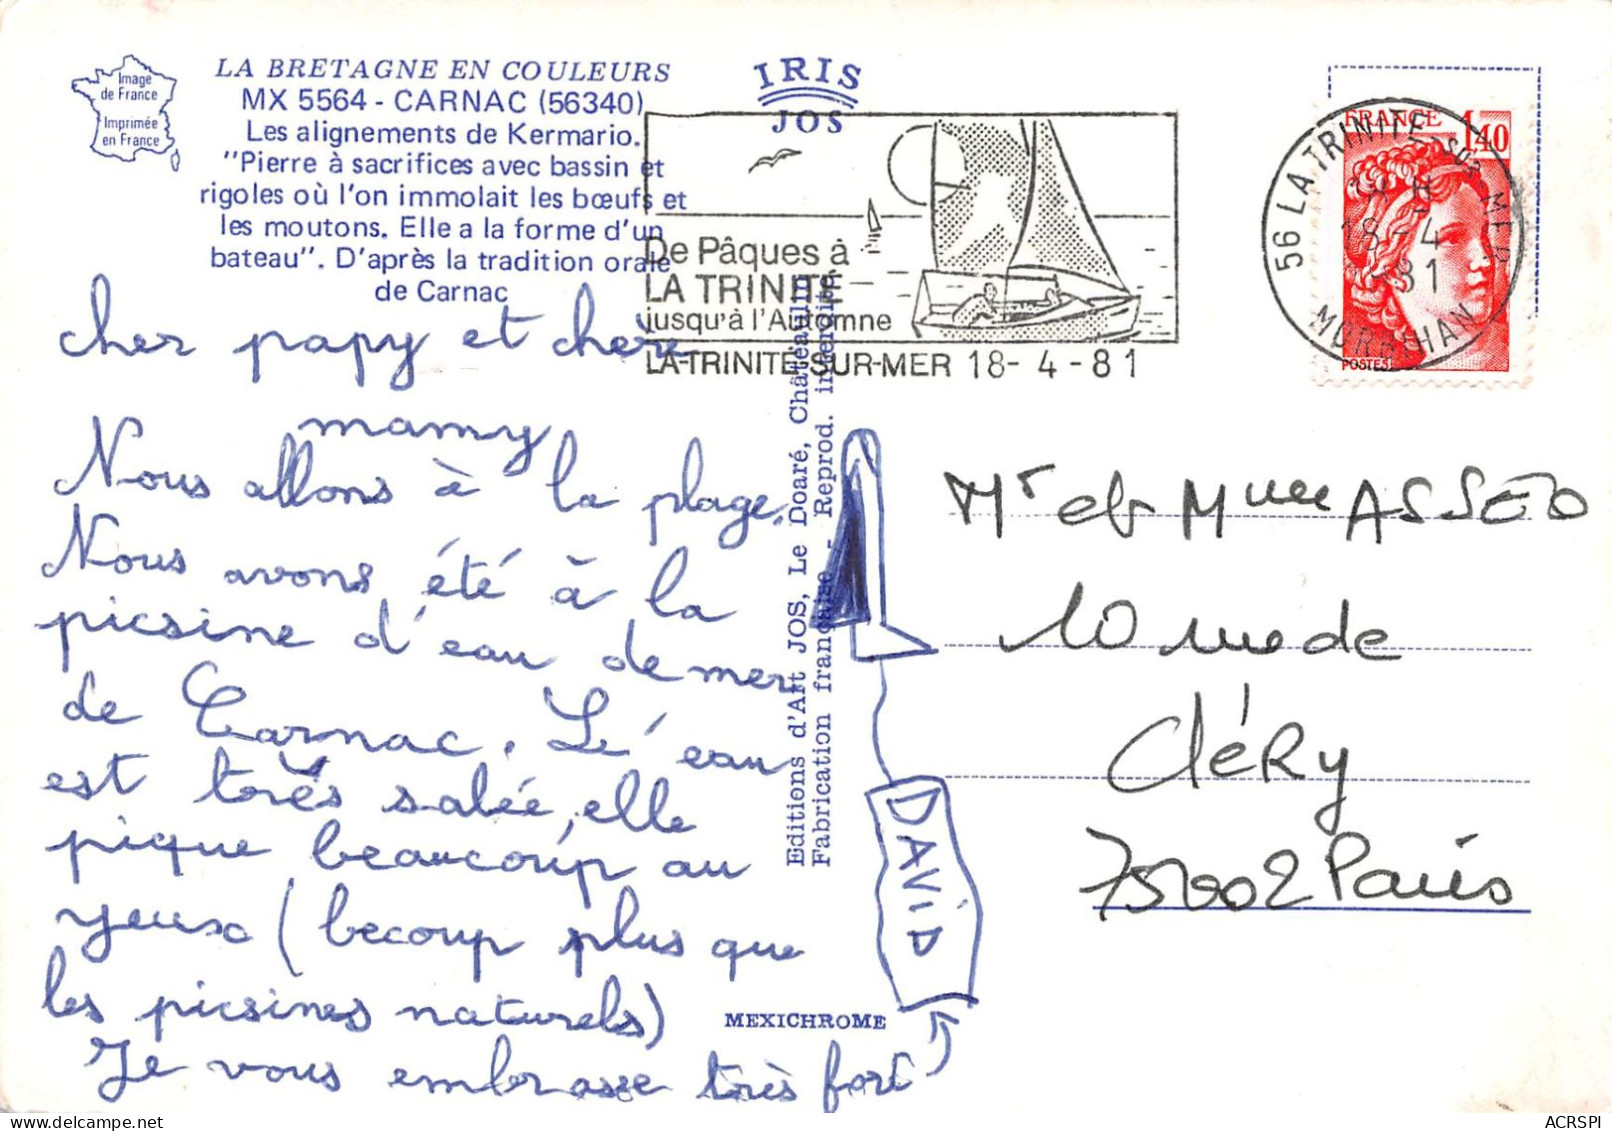 Image
de France
Imprimée
en France
LA BRETAGNE EN COULEURS
MX 5564 - CARNAC (56340)
Les alignements de Kermario.
"Pierre à sacrifices avec bassin et
rigoles où l'on immolait les bœufs et
les moutons. Elle a la forme d'un
bateau". D'après la tradition orale
de Carnac
IRIS
JOS
De Pâques à
LA TRINITÉ
jusqu'à l'Automne
LA-TRINITÉ-SUR-MER 18- 4 -81
FRANCE 1,40
POSTES
56 LA TRINITE SUR-MER
18-4
81
MORBIHAN
cher papy et chère
mamy
Nous allons à la plage.
Nous avons été à la
picsine d'eau de mer
de Carnac. Lé'eau
est très salée, elle
pique beaucoup au
yeux (becoup plus que
les picsines naturels)
Je vous embrasse très fort
DAViD
Editions d'Art JOS, Le Doaré, Châteaulin
Fabrication française - Reprod. interdite
MEXICHROME
Mr et Mme ASSEO
10 rue de
Cléry
75002 Paris
ACRSPI